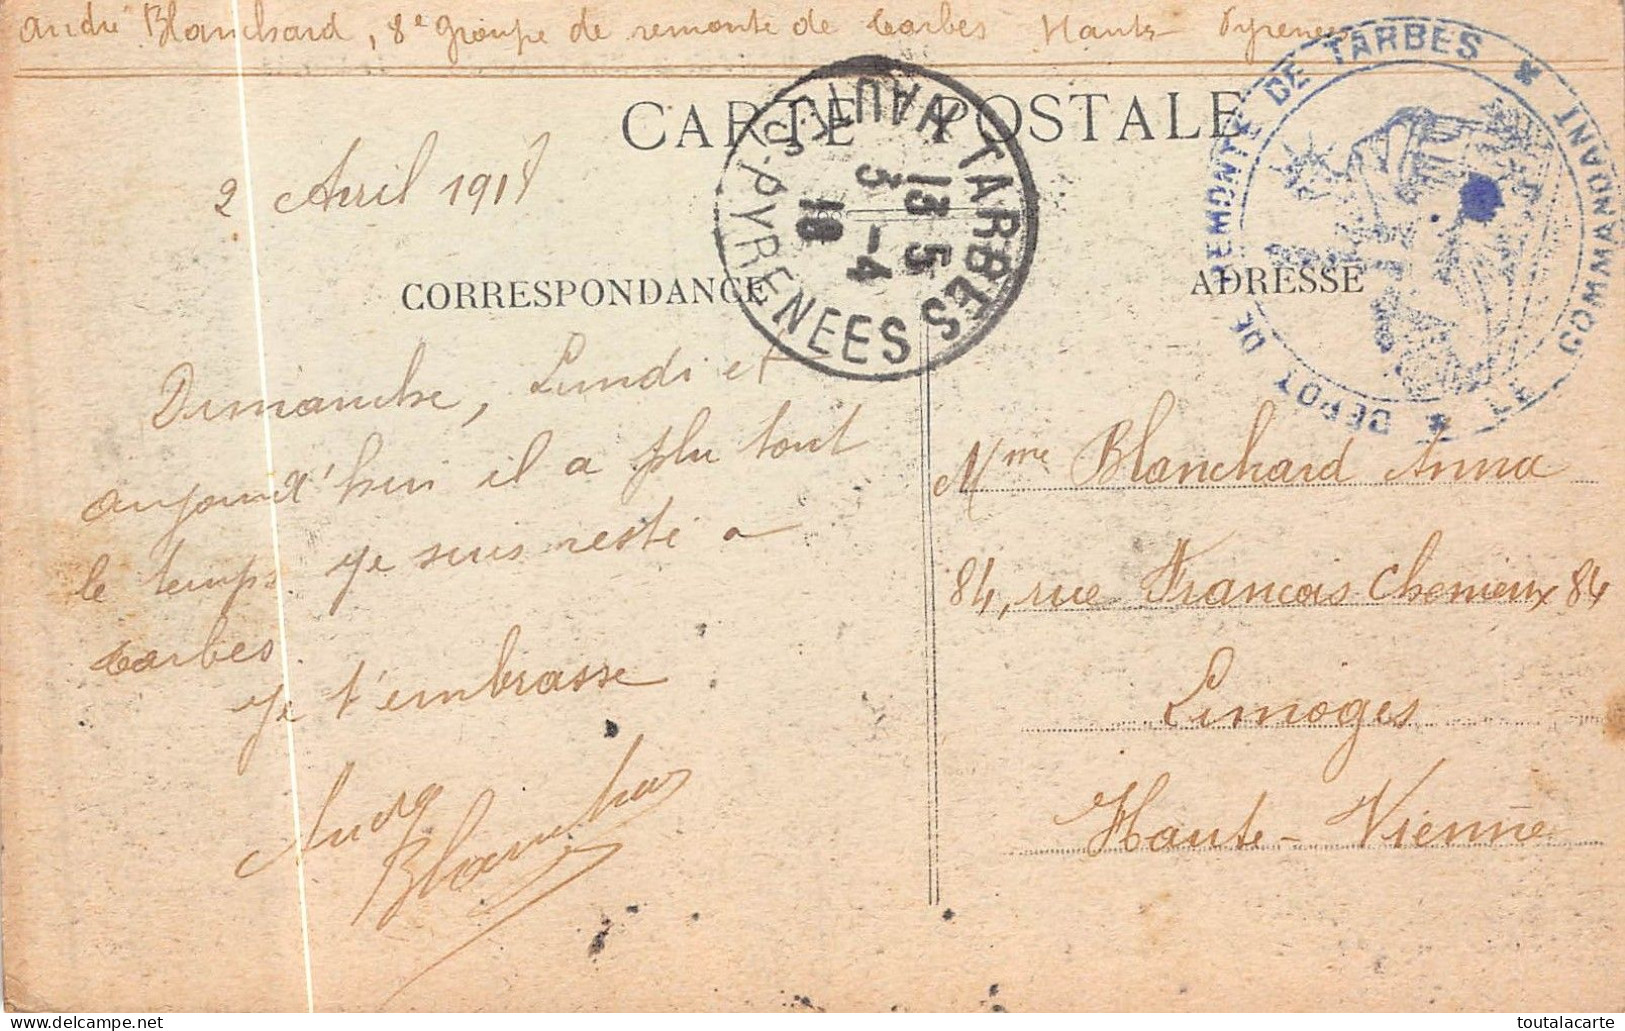 André Blanchard, 8e groupe de remonte de Tarbes Hautes Pyrenees
CARTE POSTALE
TARBES
HAUTES-PYRENEES
13 5
3 -4
18
DEPOT DE REMONTE DE TARBES
COMMANDANT
2 Avril 1918
CORRESPONDANCE
ADRESSE
Dimanche, Lundi et
aujourd'hui il a plu tout
le temps. je suis resté a
Tarbes.
Je t'embrasse
André
Blanchard
Mme Blanchard Anna
84, rue Francois Chenieux 84
Limoges
Haute-Vienne
toutalacarte